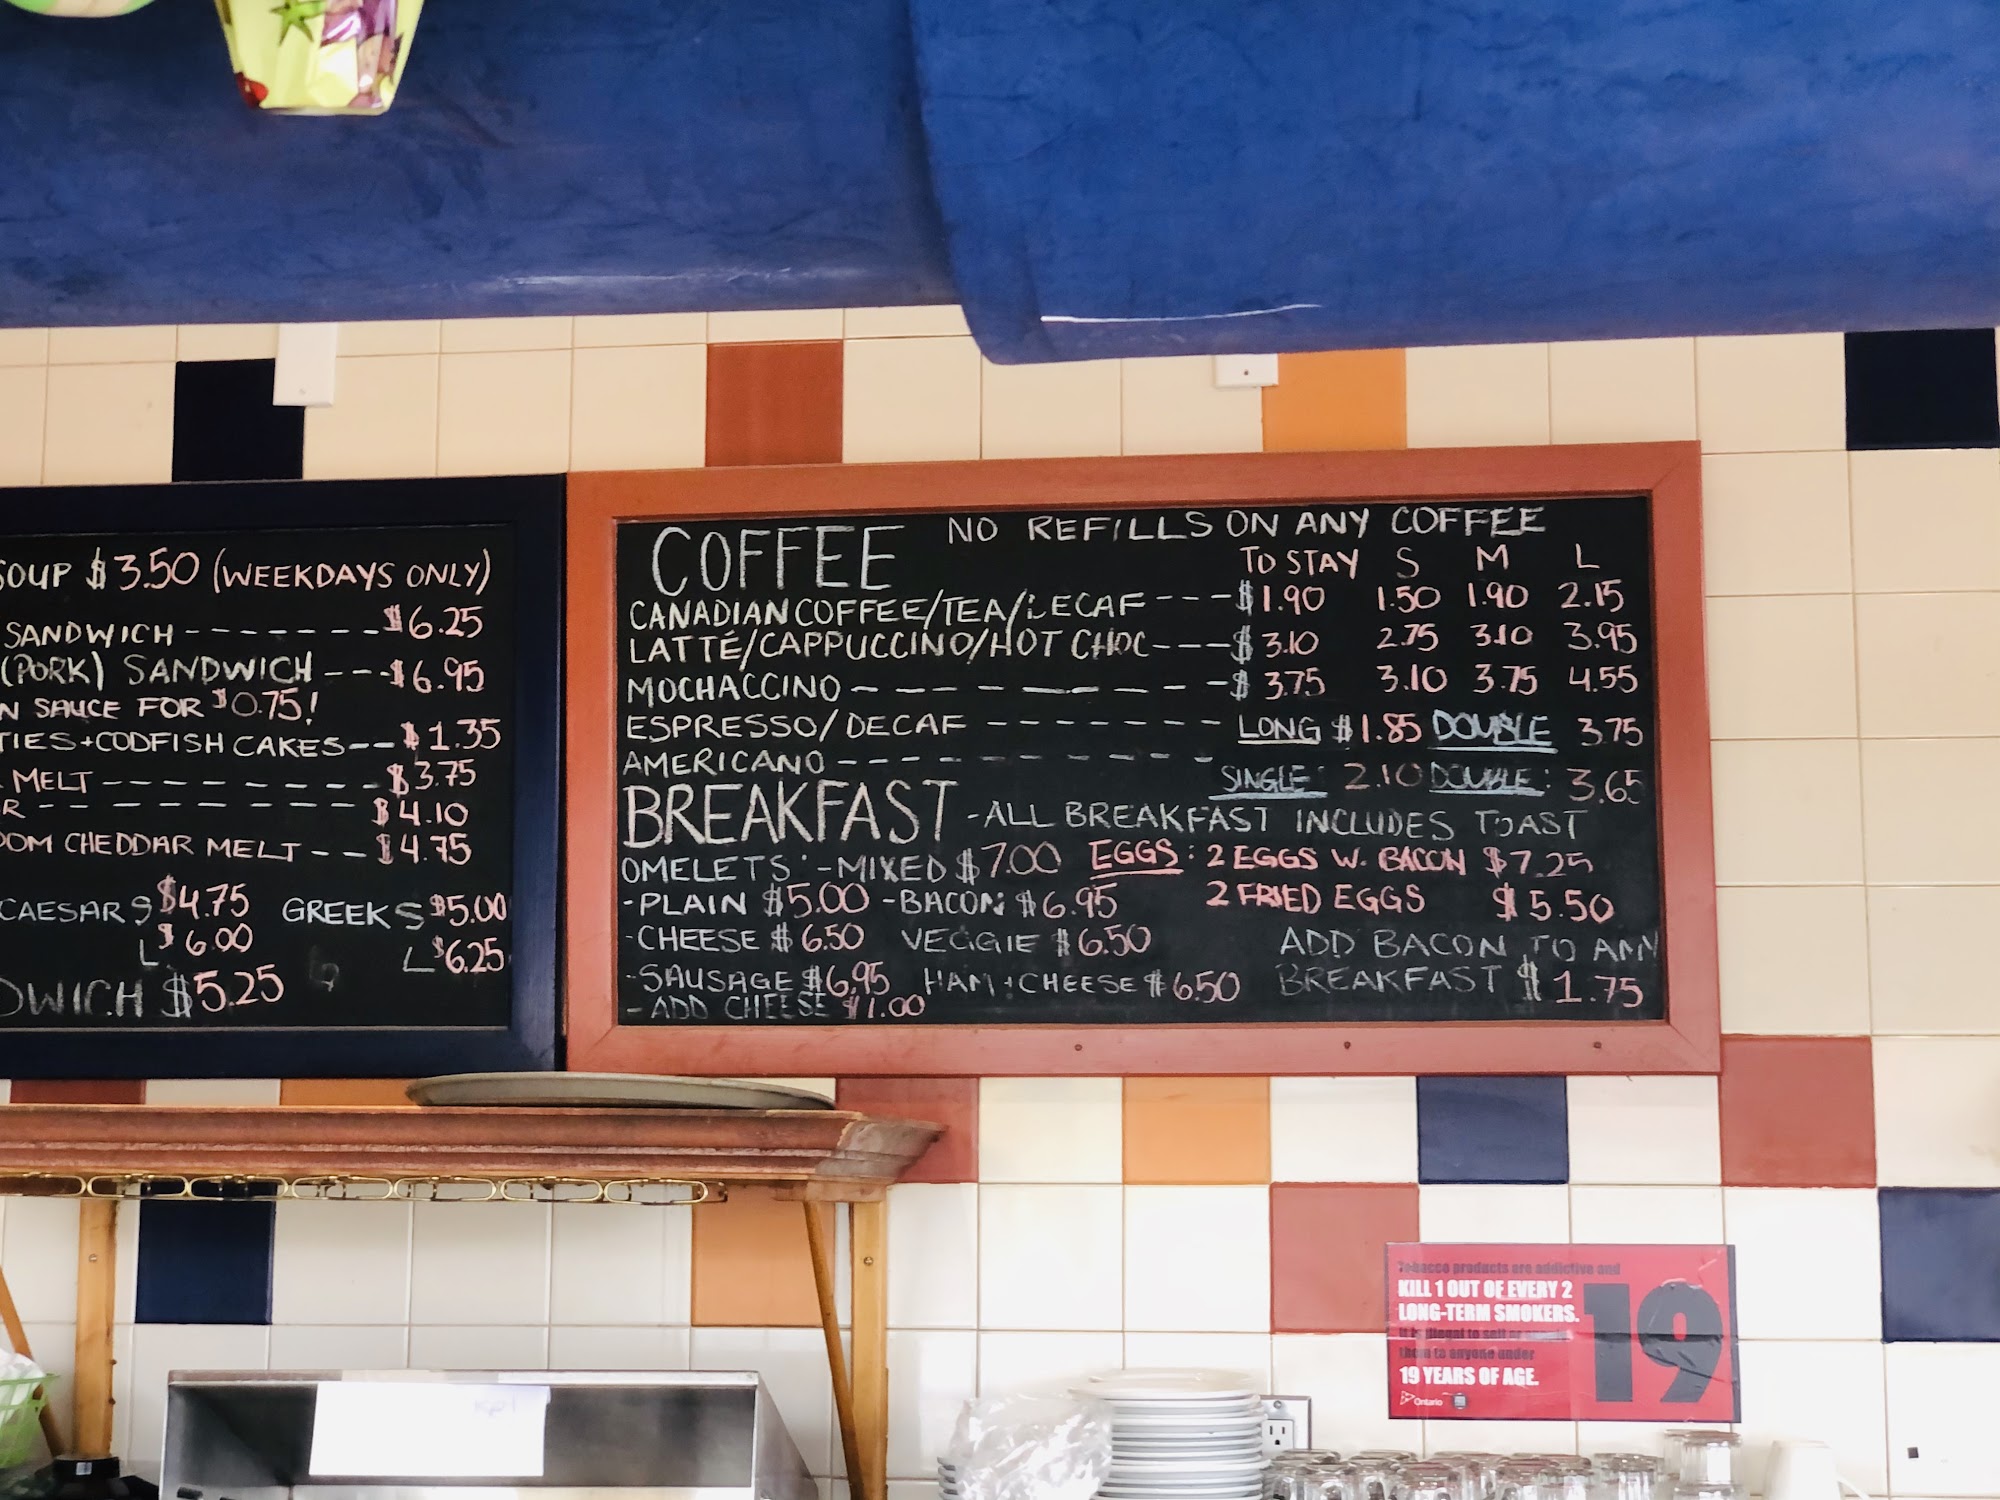 SOUP $3.50 (WEEKDAYS ONLY)
SANDWICH - - - - - - - $6.25
(PORK) SANDWICH - - - $6.95
SAUCE FOR $0.75!
+ CODFISH CAKES - - $1.35
MELT - - - - - - - - - $3.75
- - - - - - - - - $4.10
CHEDDAR MELT - - - $4.75
CAESAR S $4.75 GREEK S $5.00
L $6.00 L $6.25
$5.25
COFFEE NO REFILLS ON ANY COFFEE
TO STAY S M L
CANADIAN COFFEE/TEA/DECAF - - - $1.90 1.50 1.90 2.15
LATTÉ/CAPPUCCINO/HOT CHOC - - - $3.10 2.75 3.10 3.95
MOCHACCINO - - - - - - - - - $3.75 3.10 3.75 4.55
ESPRESSO/DECAF - - - - - - - - LONG $1.85 DOUBLE 3.75
AMERICANO - - - - - - - - - - SINGLE: 2.10 DOUBLE: 3.65
BREAKFAST - ALL BREAKFAST INCLUDES TOAST
OMELETS - MIXED $7.00 EGGS: 2 EGGS W. BACON $7.25
- PLAIN $5.00 - BACON $6.95 2 FRIED EGGS $5.50
- CHEESE $6.50 VEGGIE $6.50 ADD BACON TO ANY
- SAUSAGE $6.95 HAM + CHEESE $6.50 BREAKFAST $1.75
- ADD CHEESE $1.00
Tobacco products are addictive and
KILL 1 OUT OF EVERY 2
LONG-TERM SMOKERS.
It is illegal to sell or
them to anyone under
19 YEARS OF AGE.
19
Ontario